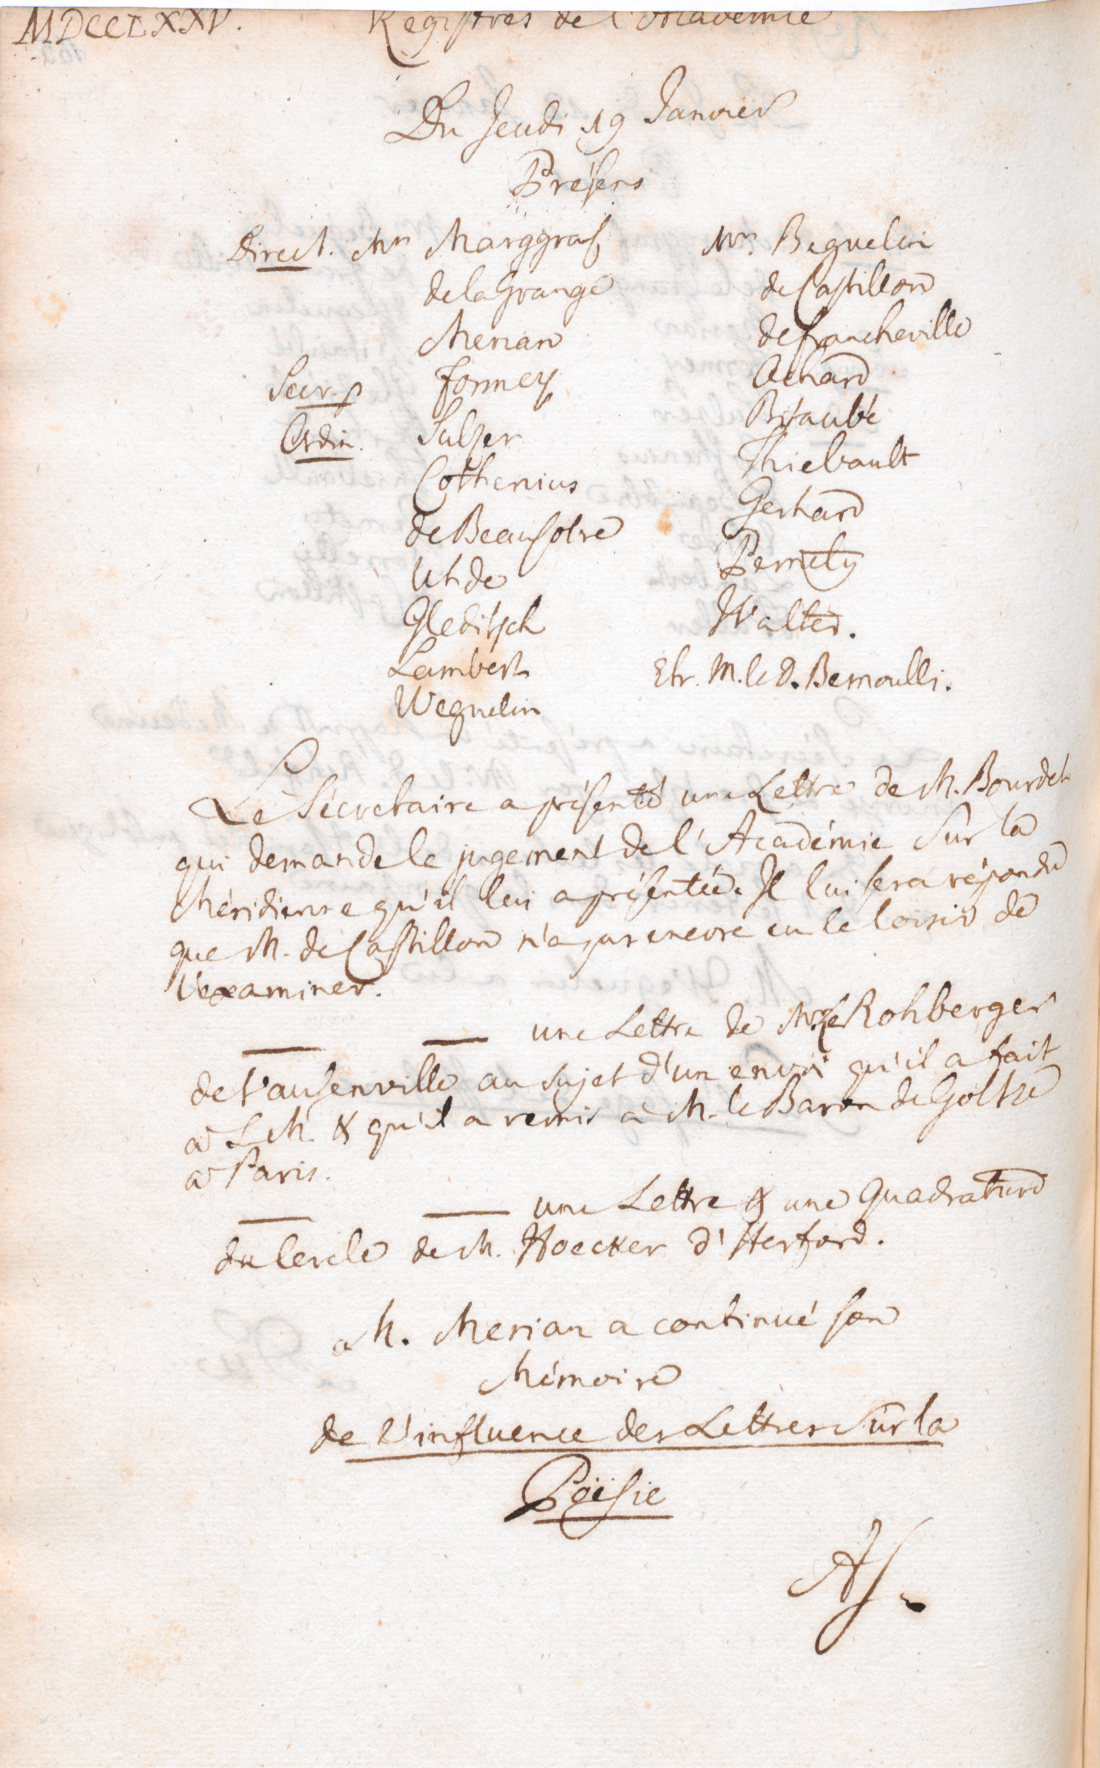 MDCCLXXV. Registres de l'Academie
Du Jeudi 19 Janvier
Présens
Direct. Mrs Marggraf
de la Grange
Merian
Secr. p. Formey
Ordin. Sulzer
Cothenius
de Beausobre
Uhde
Gleditsch
Lambert
Weguelin
Mrs Beguelin
de Castillon
de francheville
Achard
Bitaubé
Thiebault
Gerhard
Pernety
Walter.
Etr. M. le D. Bernoulli.
Le Sécretaire a présenté une Lettre de M. Bourdet
qui demande le jugement de l'Académie sur la
Méridienne qu'il lui a présentée. Il lui sera répondu
que M. de Castillon n'a pas encore eu le loisir de
l'examiner.
— — une Lettre de Mr le Rohberger
de Vausenville au sujet d'un envoi qu'il a fait
à L M. & qu'il a remis à M. le Baron de Goltze
à Paris.
— — une Lettre & une Quadrature
du Cercle de M. Hoecker d'Herford.
M. Merian a continué son
Mémoire
de l'influence des Lettres sur la
Poësie